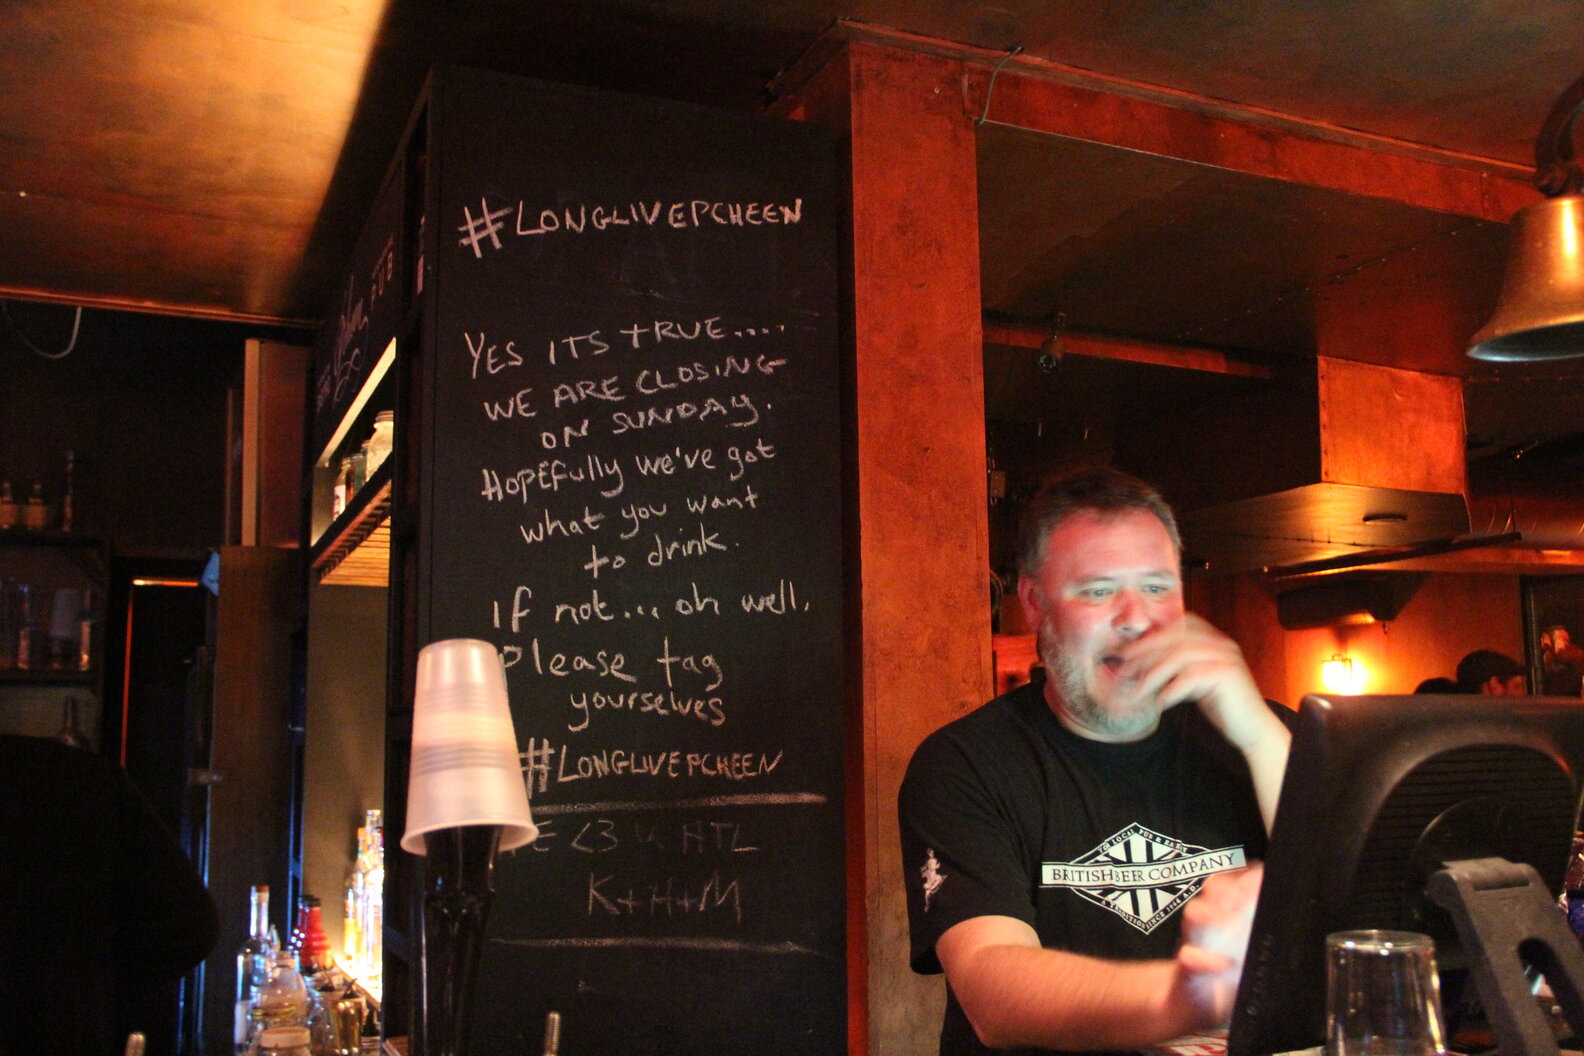 #LONGLIVEPCHEEN
YES ITS TRUE....
WE ARE CLOSING
ON SUNDAY.
HOPEFully we've got
what you want
to drink.
If not... oh well,
Please tag
yourselves
#LONGLIVEPCHEEN
<3 ATL
K+H+M
PUB
TO LOCAL PUB & BAR
BRITISH BEER COMPANY
A TRADITION SINCE A.D.